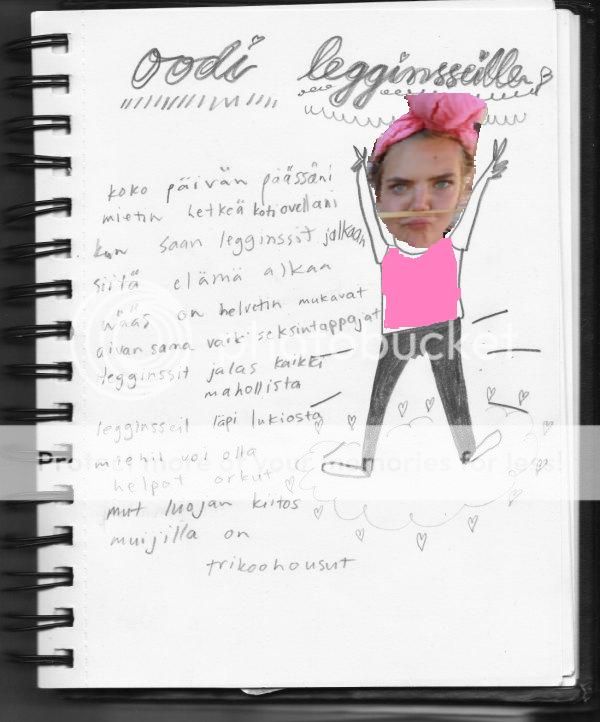 oodi legginsseille
koko päivän päässäni
mietin hetkeä kotiovellani
kun saan legginssit jalkaan
siitä elämä alkaa
wääs on helvetin mukavat
aivan sama vaik seksintappajat
legginssit jalas kaikki
mahollista
legginsseil läpi lukiosta
miehil voi olla
helpot orkut
mut luojan kiitos
muijilla on
trikoohousut
photobucket
Protect more of your memories for less!